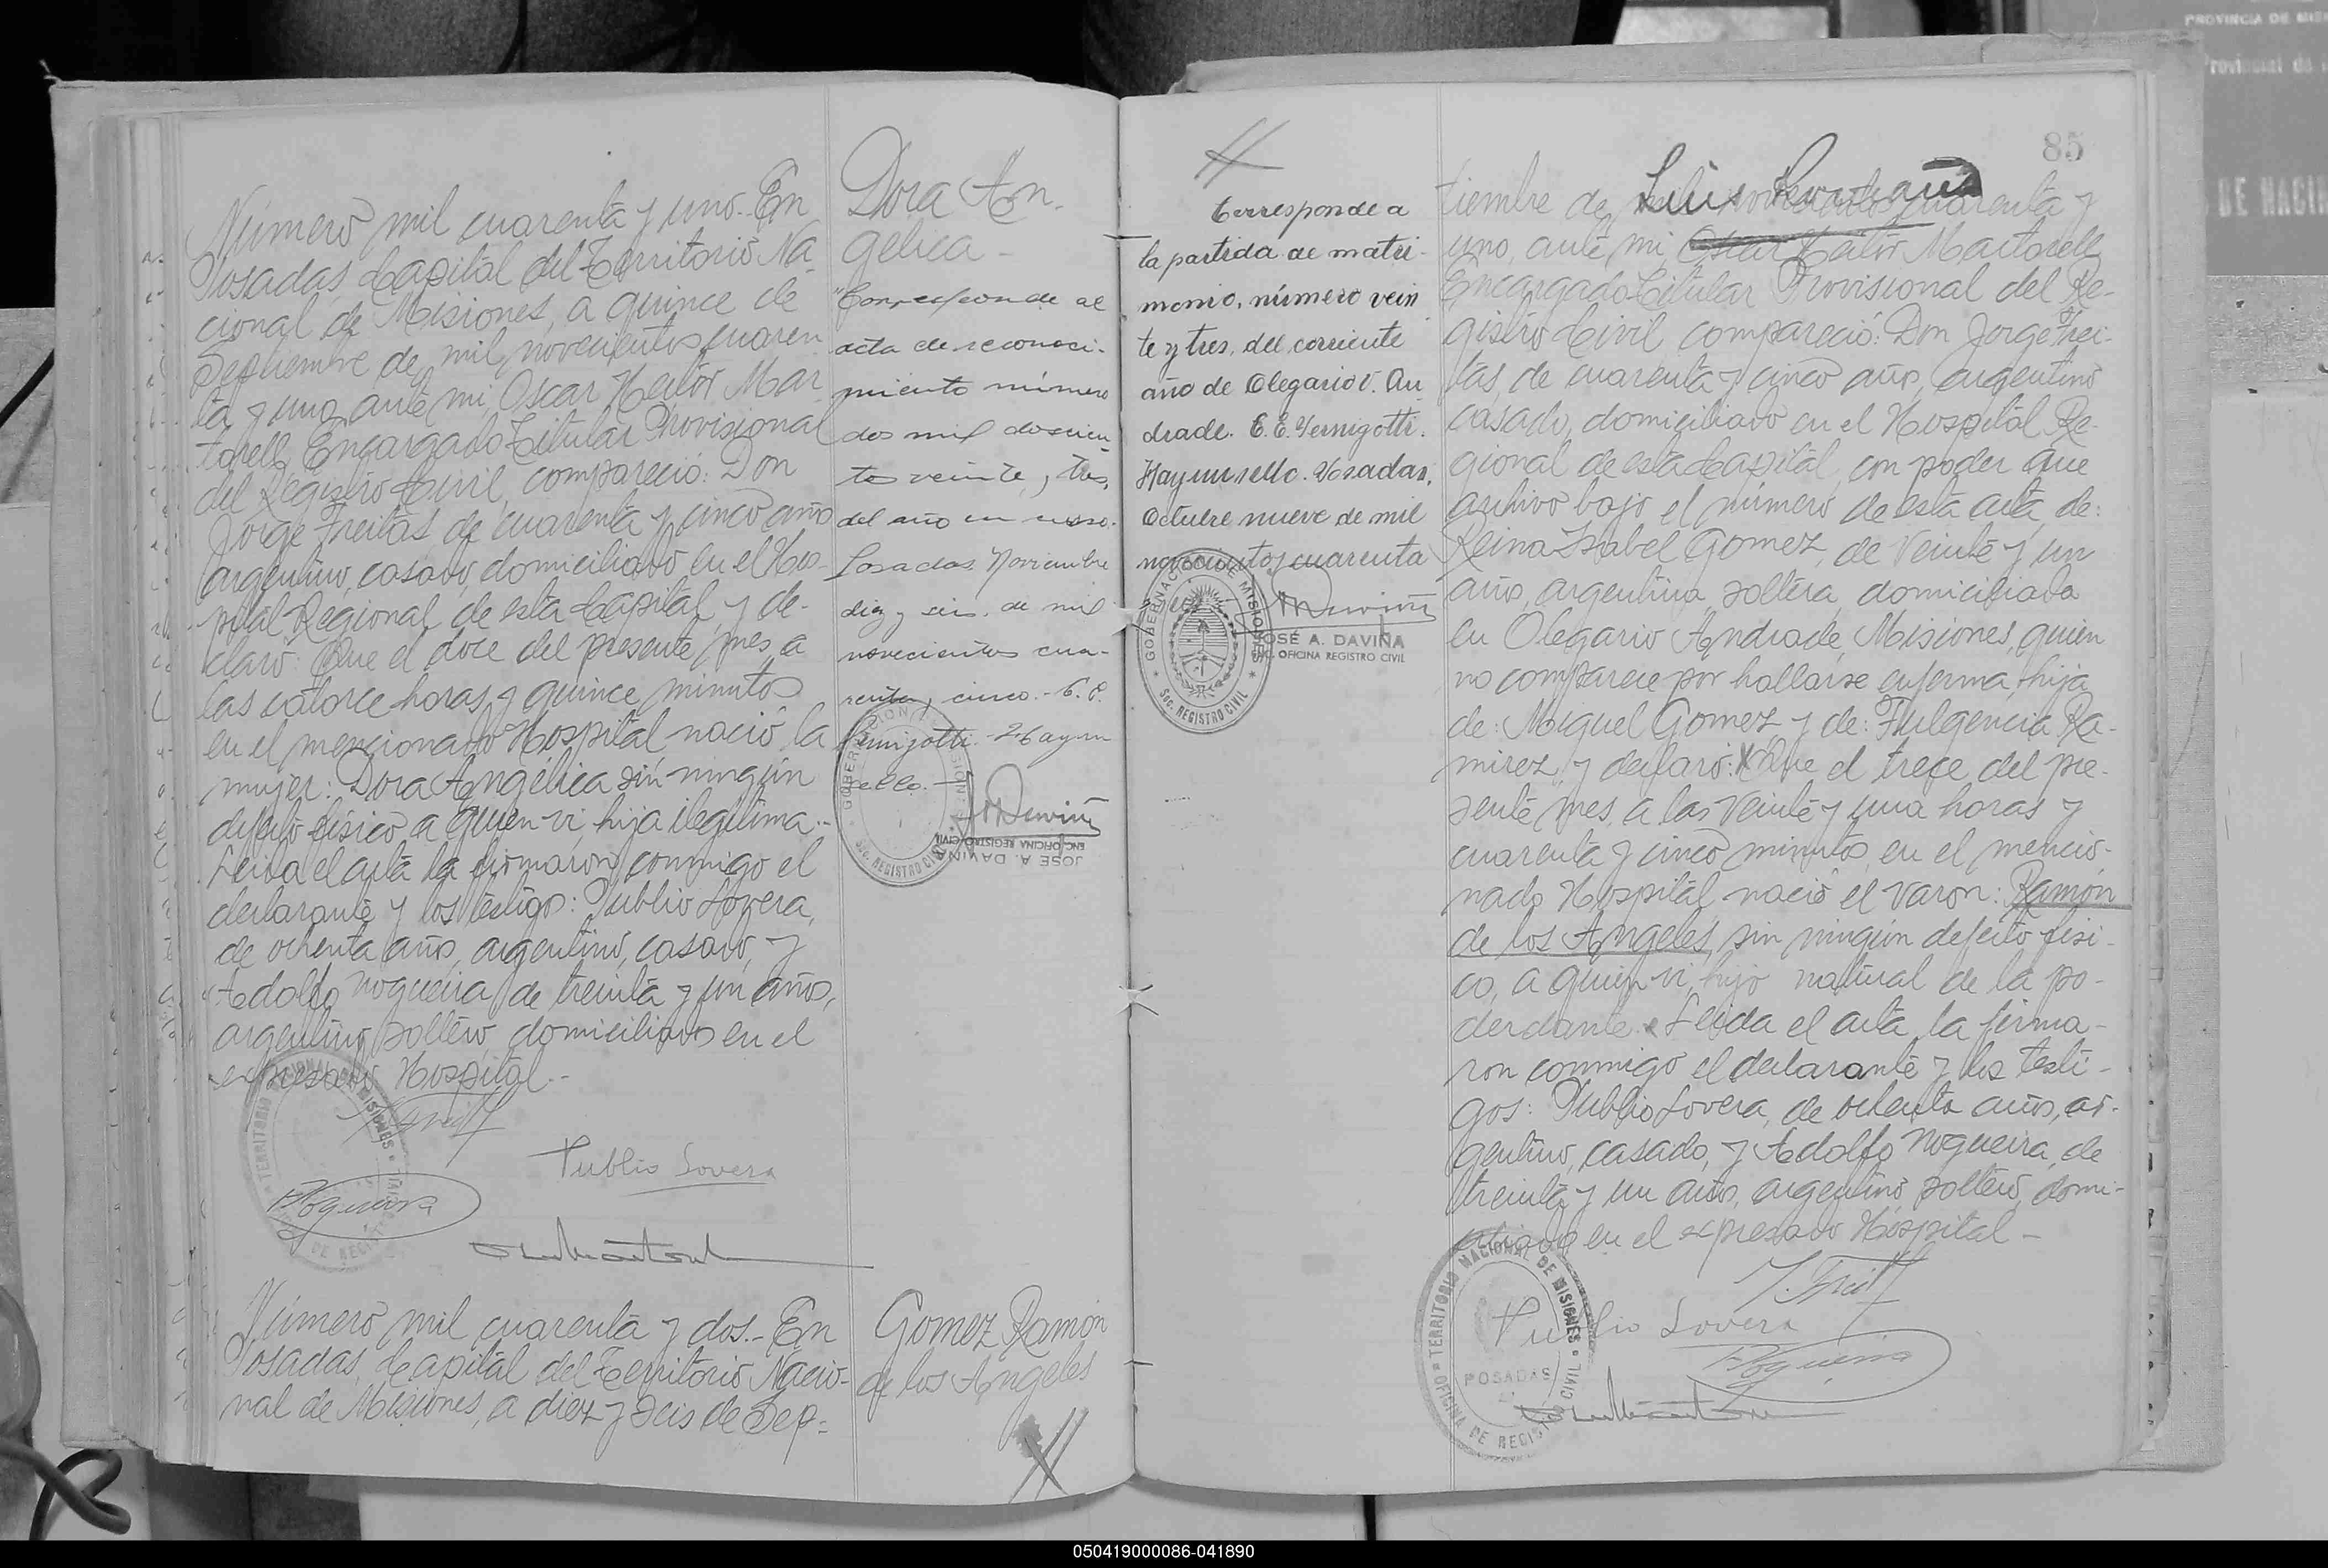 Número mil cuarenta y uno.- En
Posadas, Capital del Territorio Na-
cional de Misiones, a quince de
Septiembre de mil novecientos cuaren
ta y uno, ante mi, Oscar Hector Mar
torell, Encargado Titular Provisional
del Registro Civil, compareció: Don
Jorge Freitas de cuarenta y cinco años
argentino, casado, domiciliado en el Hos-
pital Regional de esta Capital, y de-
claró: Que el doce del presente mes, a
las catorce horas y quince minutos
en el mencionado Hospital nació la
mujer: Dora Angélica sin ningún
defecto físico, a quien vi, hija ilegítima.-
Leida el acta la firmaron conmigo el
declarante y los testigos: Publio Lovera,
de ochenta años, argentino, casado, y
Adolfo Nogueira, de treinta y un años,
argentino, soltero, domiciliados en el
expresado Hospital.-
TERRITORIO NACIONAL DE MISIONES
Publio Lovera
Nogueira
Número mil cuarenta y dos.- En
Posadas, Capital del Territorio Nacio-
nal de Misiones, a diez y seis de Sep-
Dora An-
gelica -
"Corresponde al
acta de reconoci-
miento número
dos mil doscien
tos veinte y tres,
del año en curso.
Posadas, Noviembre
diez y seis, de mil
novecientos cua-
renta y cinco.- E. E.
Vernigotti.- Hay un
sello.-
JOSÉ A. DAVIÑA
ENC. OFICINA REGISTRO CIVIL
Gomez Ramón
de los Angeles
Corresponde a
la partida de matri-
monio, número vein
te y tres, del corriente
año de Olegario V. An
drade. E. E. Vernigotti.
Hay un sello. Posadas,
Octubre nueve de mil
novecientos cuarenta
GOBERNACION DE MISIONES
SEC. REGISTRO CIVIL
JOSÉ A. DAVIÑA
ENC. OFICINA REGISTRO CIVIL
85
tiembre de mil novecientos cuarenta y
uno, ante mi Oscar Hector Martorell
Encargado Titular Provisional del Re-
gistro Civil, compareció: Don Jorge Frei-
tas, de cuarenta y cinco años, argentino
casado, domiciliado en el Hospital Re-
gional de esta Capital, con poder que
archivo bajo el número de esta acta, de:
Reina Isabel Gomez, de veinte y un
años, argentina, soltera, domiciliada
en Olegario Andrade, Misiones, quien
no comparece por hallarse enferma, hija
de: Miguel Gomez, y de: Fulgencia Ra-
mirez, y declaró: Que el trece del pre-
sente mes, a las veinte y una horas y
cuarenta y cinco minutos, en el mencio-
nado Hospital, nació el varon: Ramón
de los Angeles, sin ningún defecto fisi-
co, a quien vi, hijo natural de la po-
derdante. Leida el acta, la firma-
ron conmigo el declarante y los testi-
gos: Publio Lovera, de ochenta años, ar-
gentino, casado, y Adolfo Nogueira, de
treinta y un años, argentino, soltero, domi-
ciliado en el expresado Hospital -
J. Freitas
Publio Lovera
Nogueira
TERRITORIO NACIONAL DE MISIONES
OFICINA DE REGISTRO CIVIL
POSADAS
PROVINCIA DE MISI
Provincial de
DE NACIM
050419000086-041890